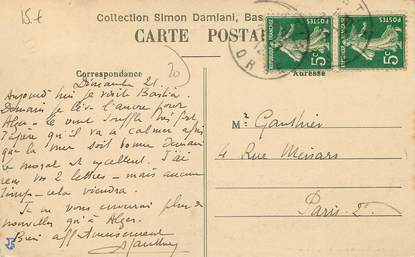 15.f
Collection Simon Damiani, Bas
CARTE POSTA
20
POSTES
5c
5c
Correspondance
Adresse
Dimanche 21
Aujourd'hui je visite Bastia.
Demain je lève l'ancre pour
Alger - le vent souffle très fort
J'espère qu'il va se calmer afin
que la mer soit bonne demain
le moral est excellent. J'ai
reçu vos 2 lettres - mais aucun
cela viendra.
Je ne vous enverrai plus de
nouvelles qu'à Alger.
Bien affectueusement
Gauthier
Mr Gauthier
4 Rue
Paris 2e